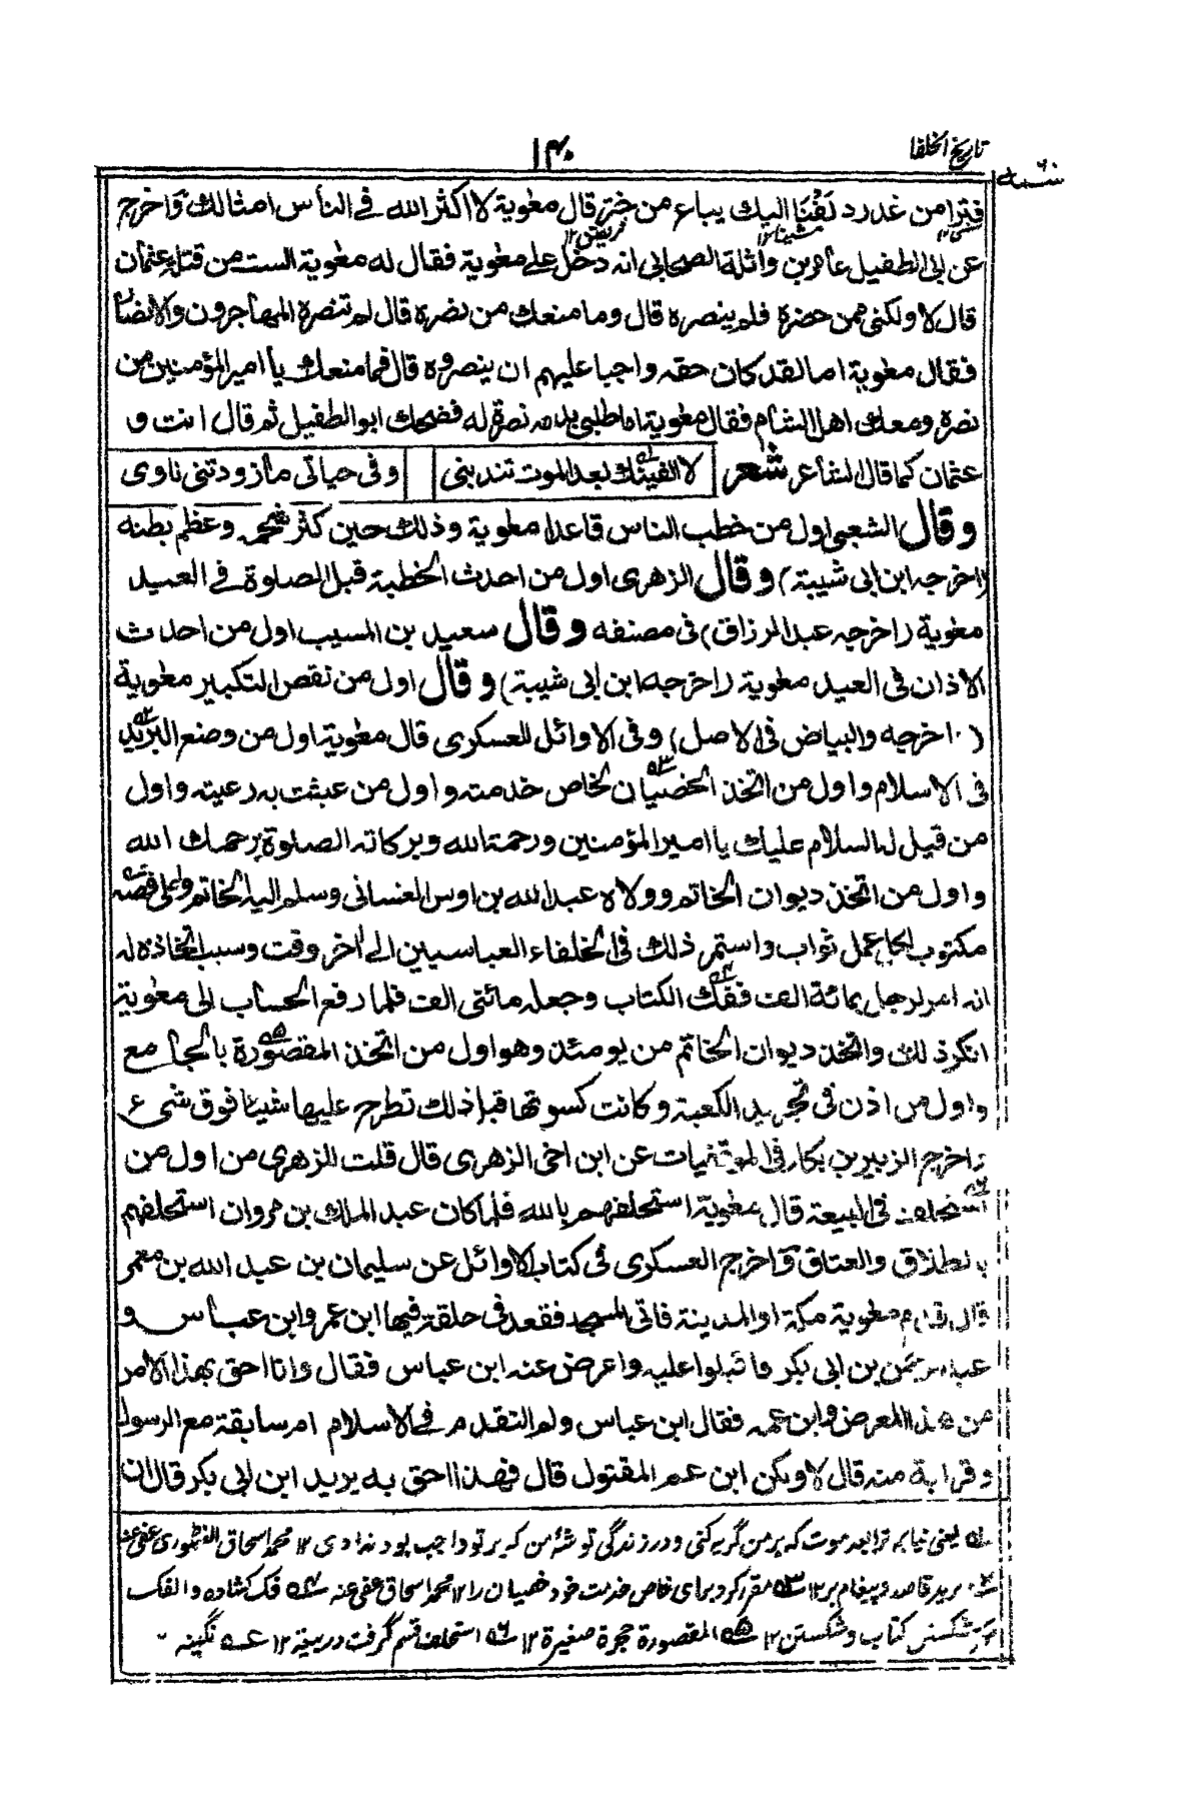 تاریخ الخلفا
۱۴۰
سنة ۶۰
فترا من غدر دلفنا اليك يباع من ختر قال معوية لا اكثر الله في الناس امثالك وآخرج
عن ابي الطفيل عامر بن واثلة الصحابي انه دخل على معوية فقال له معوية الست من قتلة عثمان
قال لا ولكني ممن حضره فلم ينصره قال وما منعك من نصره قال لم تنصره المهاجرون والانصار
فقال معوية اما لقد كان حقه واجبا عليهم ان ينصروه قال فما منعك يا امير المؤمنين من
نصره ومعك اهل الشام فقال معوية اما طلبي بدمه نصرة له فضحك ابو الطفيل ثم قال انت و
عثمان كما قال الشاعر شعر لا الفينك بعد الموت تندبني وفي حياتي ما زودتني زادي
وقال الشعبي اول من خطب الناس قاعدا معوية وذلك حين كثر شحمه وعظم بطنه
(اخرجه ابن ابي شيبة) وقال الزهري اول من احدث الخطبة قبل الصلوة في العيد
معوية (اخرجه عبد الرزاق) في مصنفه وقال سعيد بن المسيب اول من احدث
الاذان في العيد معوية (اخرجه ابن ابي شيبة) وقال اول من نقص التكبير معوية
(اخرجه والبياض في الاصل) وفي الاوائل للعسكري قال معوية اول من وضع البريد
في الاسلام واول من اتخذ الخصيان لخاص خدمته واول من عبثت به رعيته واول
من قيل له السلام عليك يا امير المؤمنين ورحمة الله وبركاته الصلوة يرحمك الله
واول من اتخذ ديوان الخاتم وولاه عبد الله بن اوس الغساني وسلم اليه الخاتم وعلى فصه
مكتوب لكل عمل ثواب واستمر ذلك في الخلفاء العباسيين الى آخر وقت وسبب اتخاذه له
انه امر لرجل بمائة الف ففك الكتاب وجعله مائتي الف فلما رفع الحساب الى معوية
انكر ذلك واتخذ ديوان الخاتم من يومئذ وهو اول من اتخذ المقصورة بالجامع
واول من اذن في تجريد الكعبة وكانت كسوتها قبل ذلك تطرح عليها شيئا فوق شيء
واخرج الزبير بن بكار في الموفقيات عن ابن اخي الزهري قال قلت للزهري من اول من
استحلف في البيعة قال معوية استحلفهم بالله فلما كان عبد الملك بن مروان استحلفهم
بالطلاق والعتاق وآخرج العسكري في كتاب الاوائل عن سليمان بن عبد الله بن معمر
قال قدم معوية مكة او المدينة فاتى المسجد فقعد في حلقة فيها ابن عمر وابن عباس و
عبد الرحمن بن ابي بكر فاقبلوا عليه واعرض عنه ابن عباس فقال وانا احق بهذا الامر
من هذا المعرض وابن عمه فقال ابن عباس ولم التقدم في الاسلام ام سابقة مع الرسول
وقرابة منه قال لا ولكن ابن عم المقتول قال فهذا احق به يريد ابن ابي بكر قال ان
یعنی نیابم ترا بعد موت که بر من گریه کنی و در زندگی توشهٔ من که بر تو واجب بود ندادی ۱۲ محمد اسحاق عفی عنه
برید قاصد و پیغام بر ۱۲ مقرر کرد برای خاص خدمت خود خصیان را ۱۲ محمد اسحاق عفی عنه فک کشاده و الفک
شکستن کتاب و شکستن ۱۲ المقصورة حجرة صغيرة ۱۲ استحلف قسم گرفت در بیعة ۱۲ نگینه